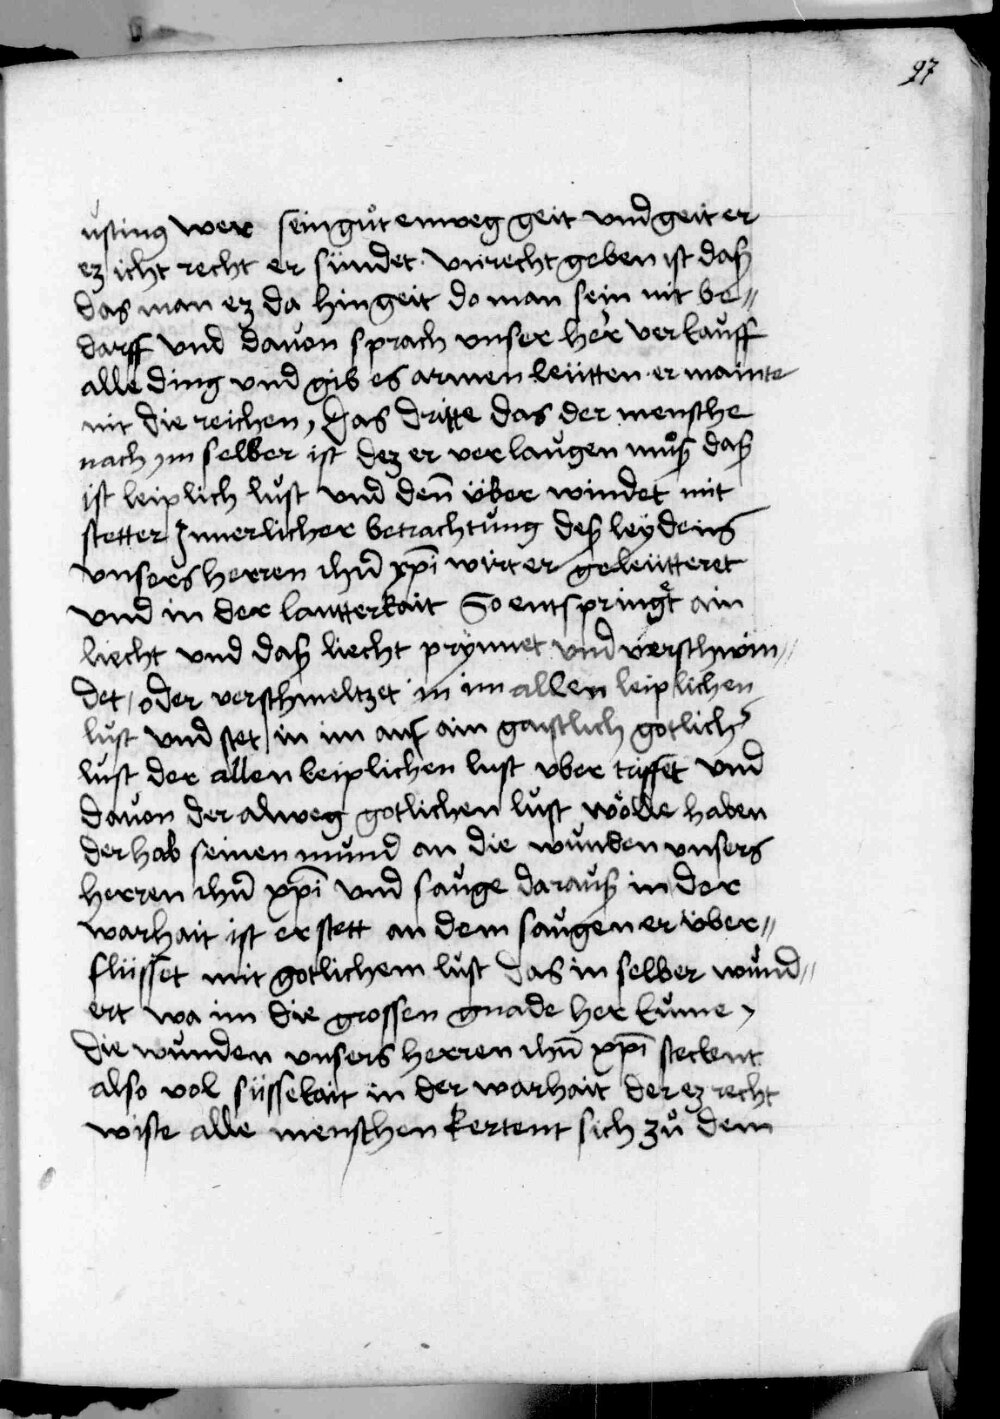 97
ustinꝰ wer sein gůt enweg geit vnd geit er
ez icht recht er sündet · vnrecht geben ist daß
das man ez da hin geit do man sein nit be〃
darff vnd dauon sprach vnser her̃ verkauff
alle ding vnd gib es armen leütten · er mainte
nit die reichen, Das dritte das der mensche
nach ym selber ist dez er verlaugen můß daß
ist leiplich lust vnd den̄ über windet mit
stetter Innerlicher betrachtung deß leydens
vnsers herren ihū xp̄i wirt er geleütteret
vnd in der lautterkait So entspringͤt ain
liecht vnd daß liecht prynnet vnd verschwin〃
det / oder verschmeltzet in im allen leiplichen
lust vnd stet in im auf ain gaistlich gotlich
lust der allen leiplichen lust vber triffet vnd
dauon der alweg gotlichen lust wölle haben
der hab seinen mund an die wunden vnsers
herren ihū xp̄i vnd sauge darauß in der
warhait ist er stett an dem saugen er über〃
flüsset mit gotlichem lust das in selber wund〃
ert wa im die grossen gnade her kume,
die wunden vnsers herren ihū xp̄i steckent
also vol süssekait in der warhait der ez recht
wiste alle menschen kertent sich zů dem